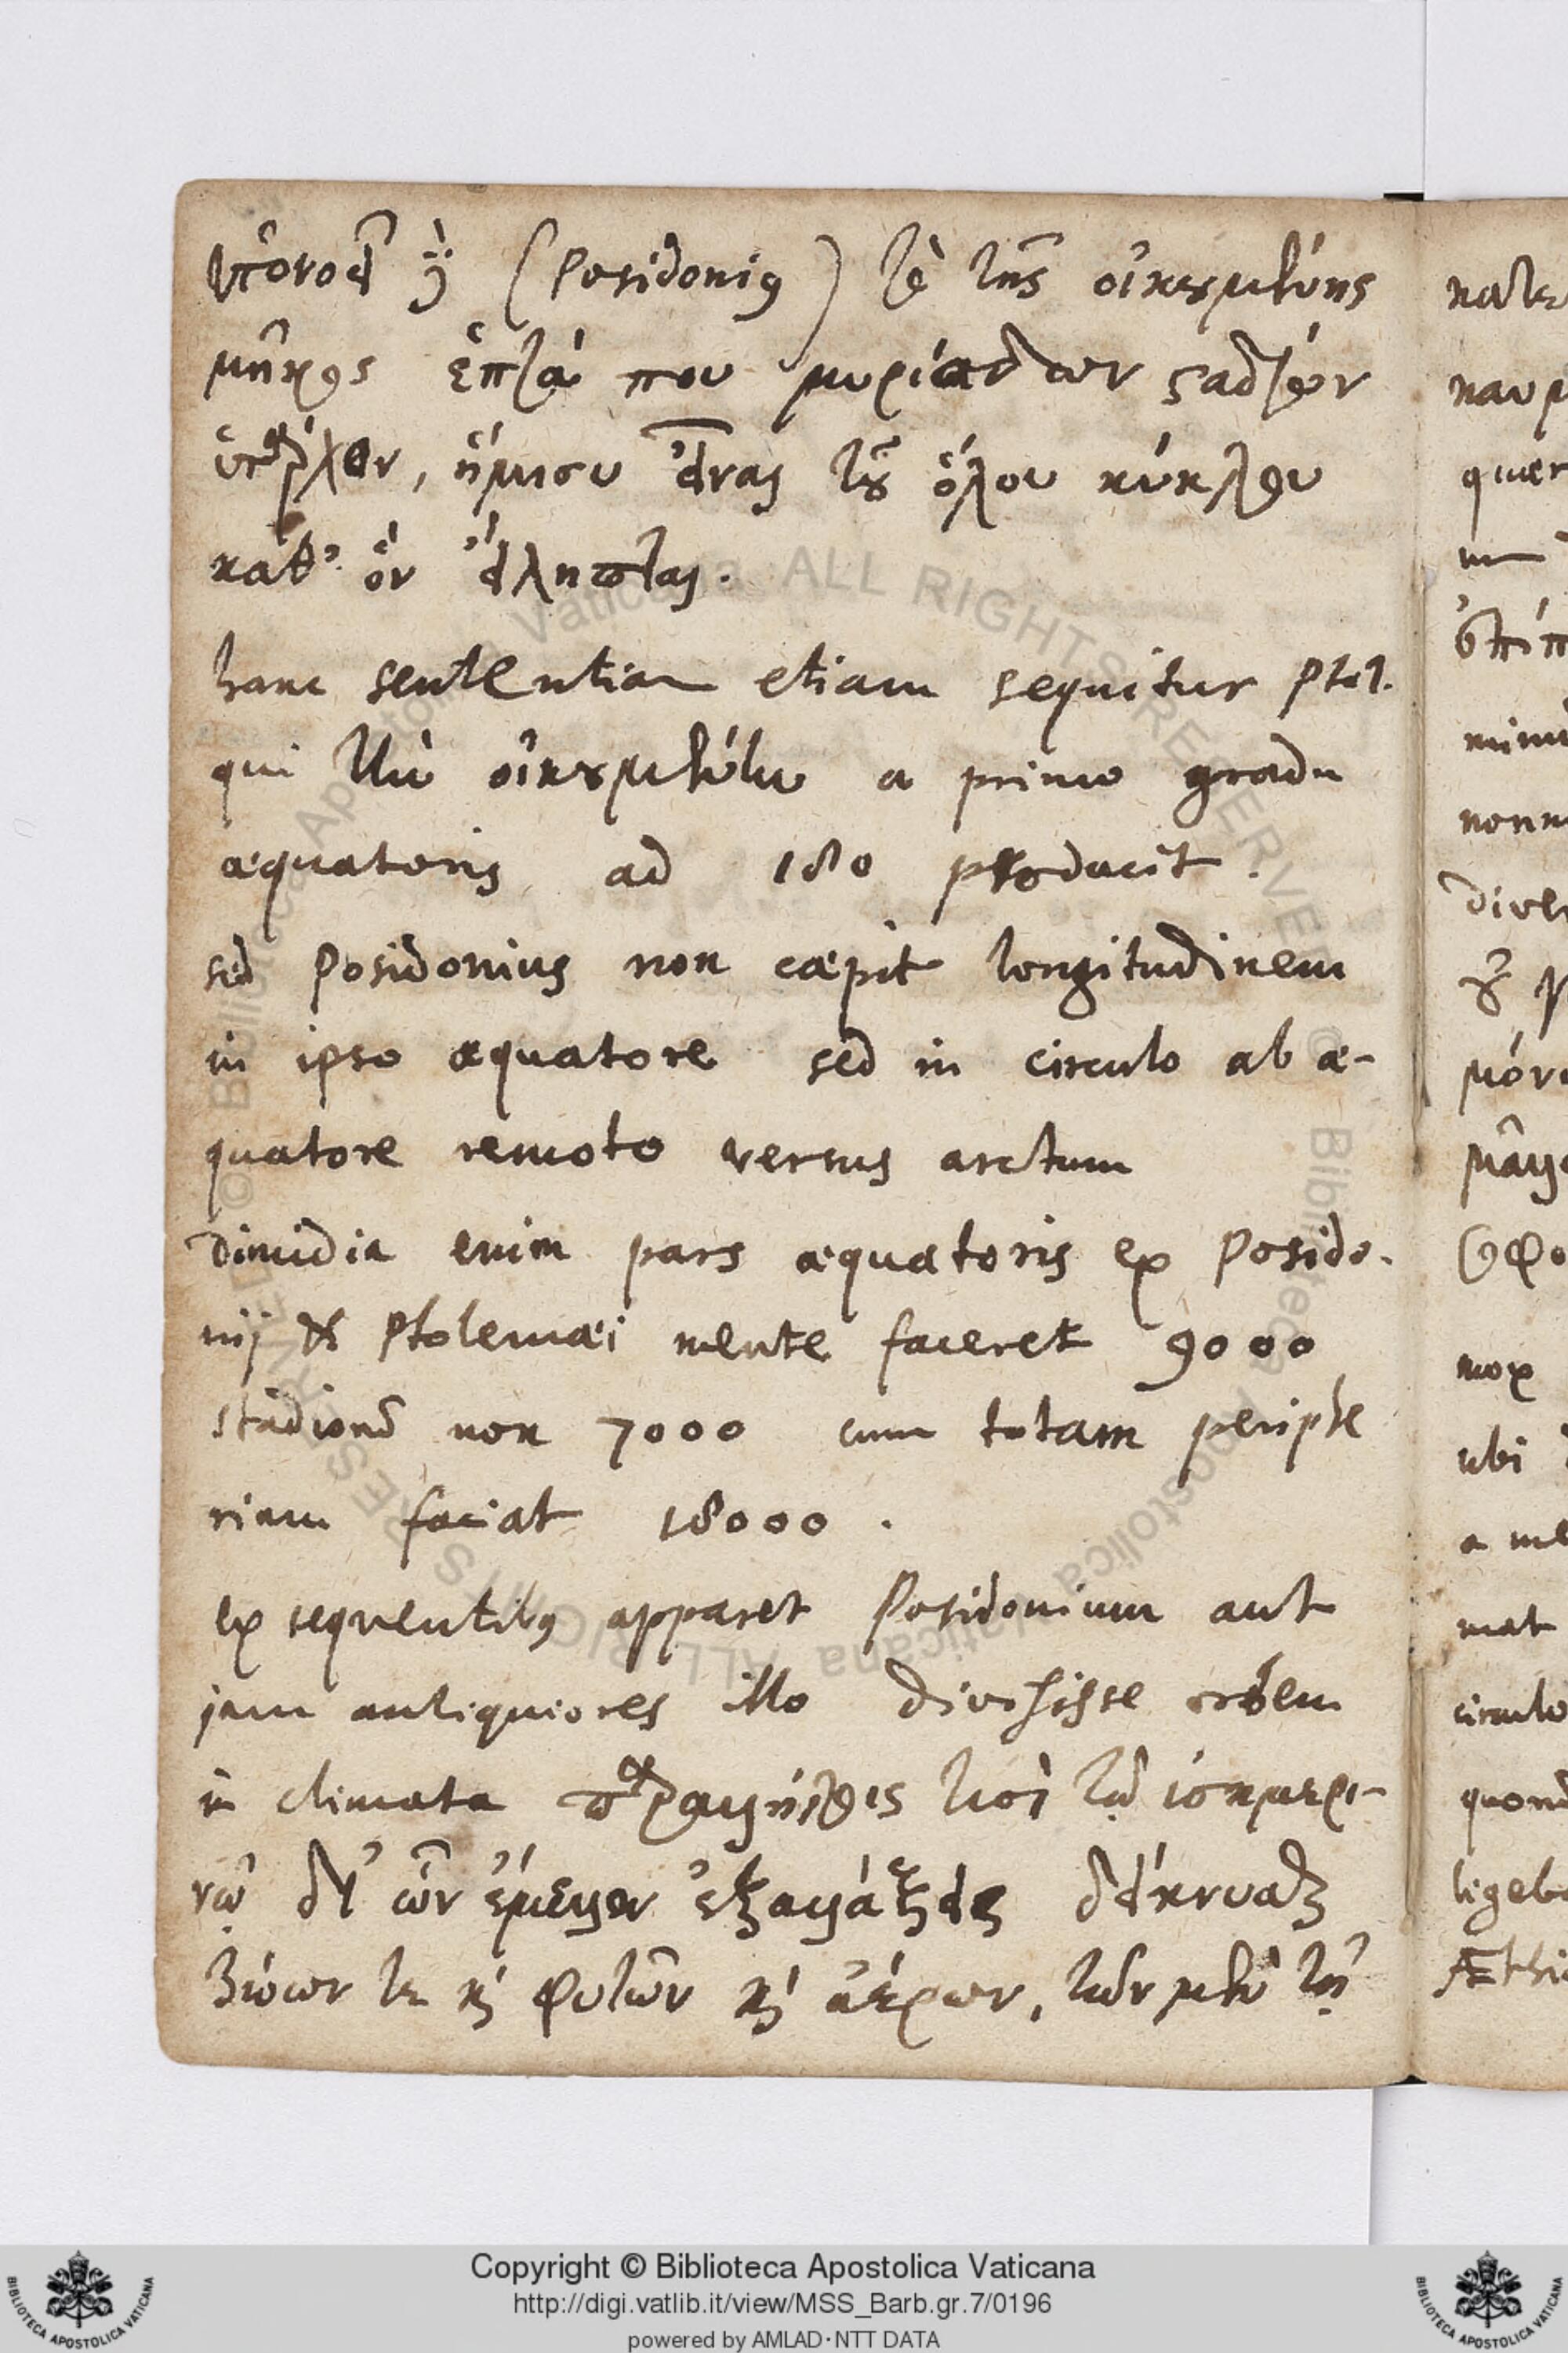 ὑπονοεῖ δὲ (Posidonius) τὸ τῆς οἰκουμένης
μῆκος ἑπτά που μυριάδων σταδίων
ὑπάρχον, ἥμισυ εἶναι τοῦ ὅλου κύκλου
καθ' ὃν εἴληπται.
hanc sententiam etiam sequitur Ptol.
qui τὴν οἰκουμένην a primo gradu
æquatoris ad 180 producit.
sed Posidonius non cæpit longitudinem
in ipso æquatore sed in circulo ab æ-
quatore remoto versus arctum
dimidia enim pars æquatoris ex Posido-
nij & Ptolemæi mente faceret 9000
stadiorū non 7000 cum totam periphe
riam faciat 18000.
ex sequentibus apparet Posidonium aut
jam antiquiores illo divisisse orbem
in climata παραλλήλοις τισὶ τῷ ἰσημερι-
νῷ δι' ὧν ἔμελλεν ἐξαλλάξεις δείκνυσθαι
ζώων τε καὶ φυτῶν καὶ ἀέρων, τῶν μὲν τῇ
κατε
καυμ
quær
ὁπόπ
minu
nonn
diver
οὐ
μόνο
μᾶλλο
σφο
mox
ubi
a me
mat
circulo
quom
ligeb
Æthi
Copyright © Biblioteca Apostolica Vaticana
http://digi.vatlib.it/view/MSS_Barb.gr.7/0196
powered by AMLAD·NTT DATA